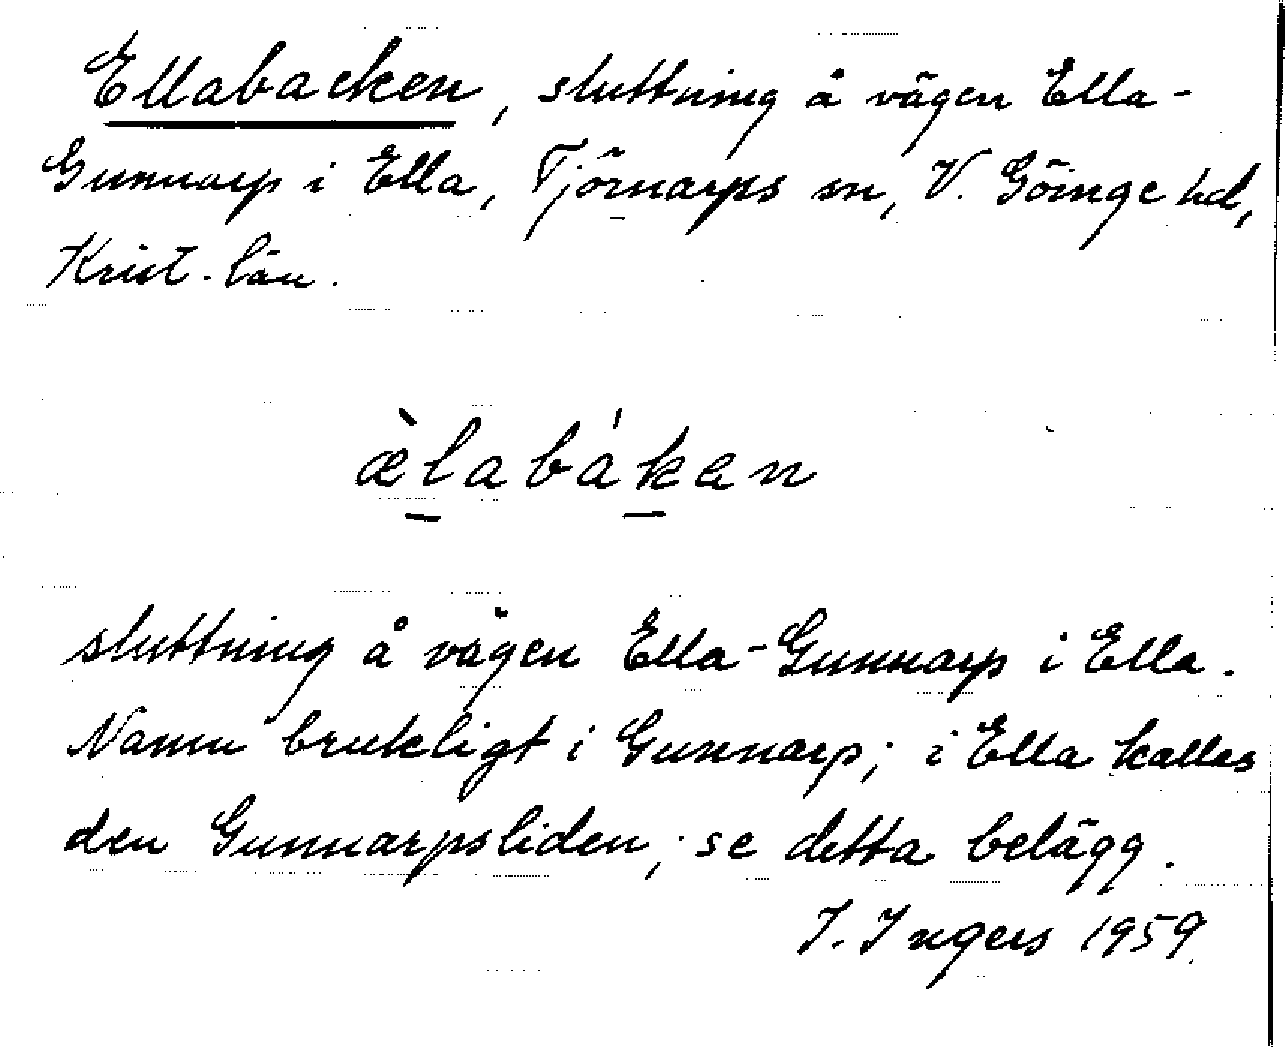 Ellabacken, sluttning å vägen Ella-
Gunnarp i Ella, Tjörnarps sn, V. Göinge hd,
Krist. län.
æ̀labákan
sluttning å vägen Ella-Gunnarp i Ella.
Namn brukligt i Gunnarp; i Ella kallas
den Gunnarpsliden; se detta belägg.
I. Ingers 1959.